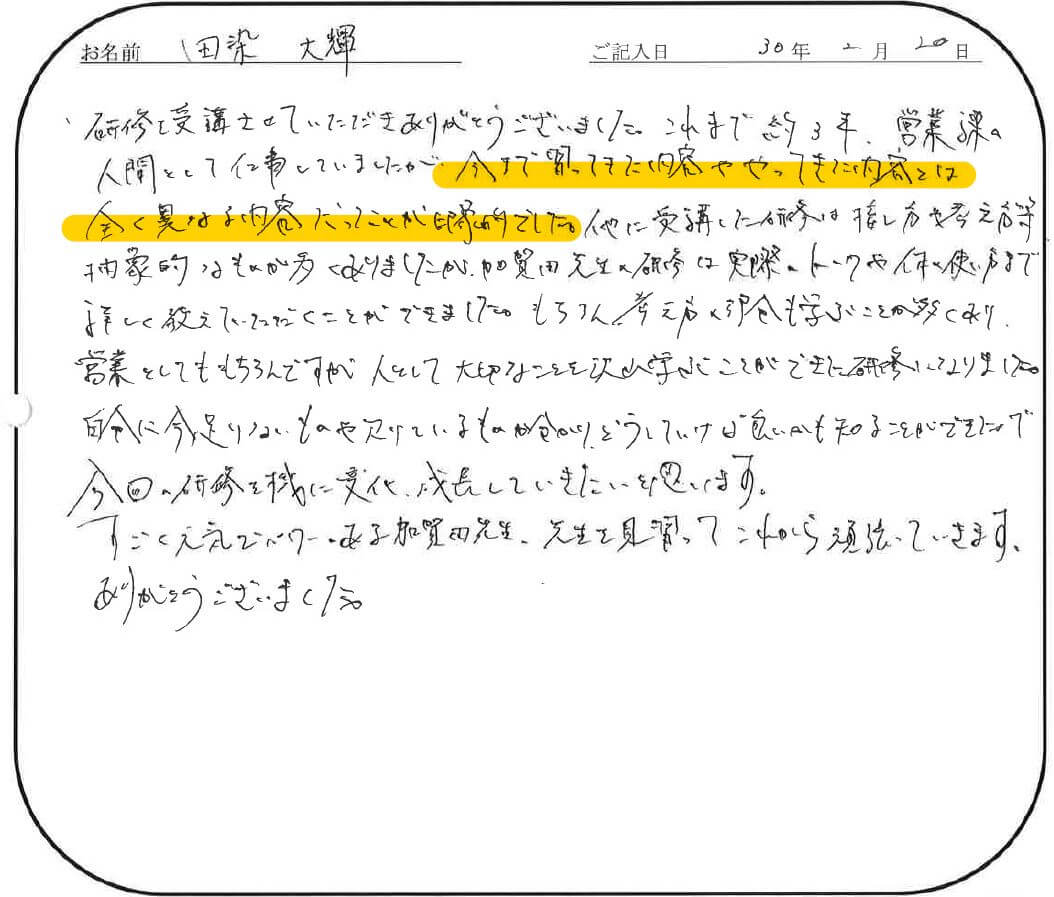 お名前 田染 大輝 ご記入日 30年2月20日
研修を受講させていただきありがとうございました。これまで約3年、営業課の
人間として仕事していましたが、今まで習ってきた内容ややってきた内容とは
全く異なる内容だったことが印象的でした。他に受講した研修は接し方や考え方等
抽象的なものが多くありましたが、加賀田先生の研修は実際のトークや体の使い方まで
詳しく教えていただくことができました。もちろん考え方の部分も学ぶことが多くあり、
営業としてももちろんですが人として大切なことを沢山学ぶことができた研修になりました。
自分に今足りないものや欠けているものが分かり、どうしていけば良いかも知ることができたので
今回の研修を機に変化、成長していきたいと思います。
すごく元気でパワーのある加賀田先生。先生を見習ってこれから頑張っていきます。
ありがとうございました。